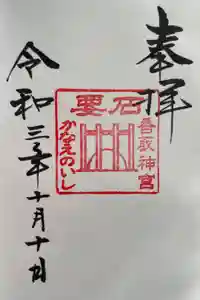 奉拝
要石
香取神宮
かなめのいし
令和三年十月十日